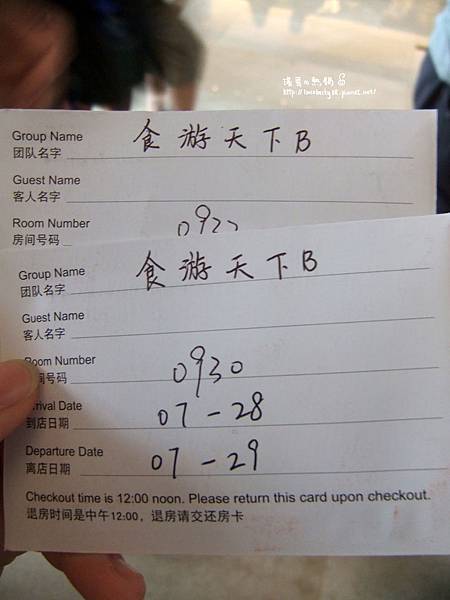 Group Name 食游天下B
团队名字
Guest Name
客人名字
Room Number
房间号码
Group Name 食游天下B
团队名字
Guest Name
客人名字
Room Number 0930
间号码
rrival Date 07-28
到店日期
Departure Date 07-29
离店日期
Checkout time is 12:00 noon. Please return this card upon checkout.
退房时间是中午12:00，退房请交还房卡